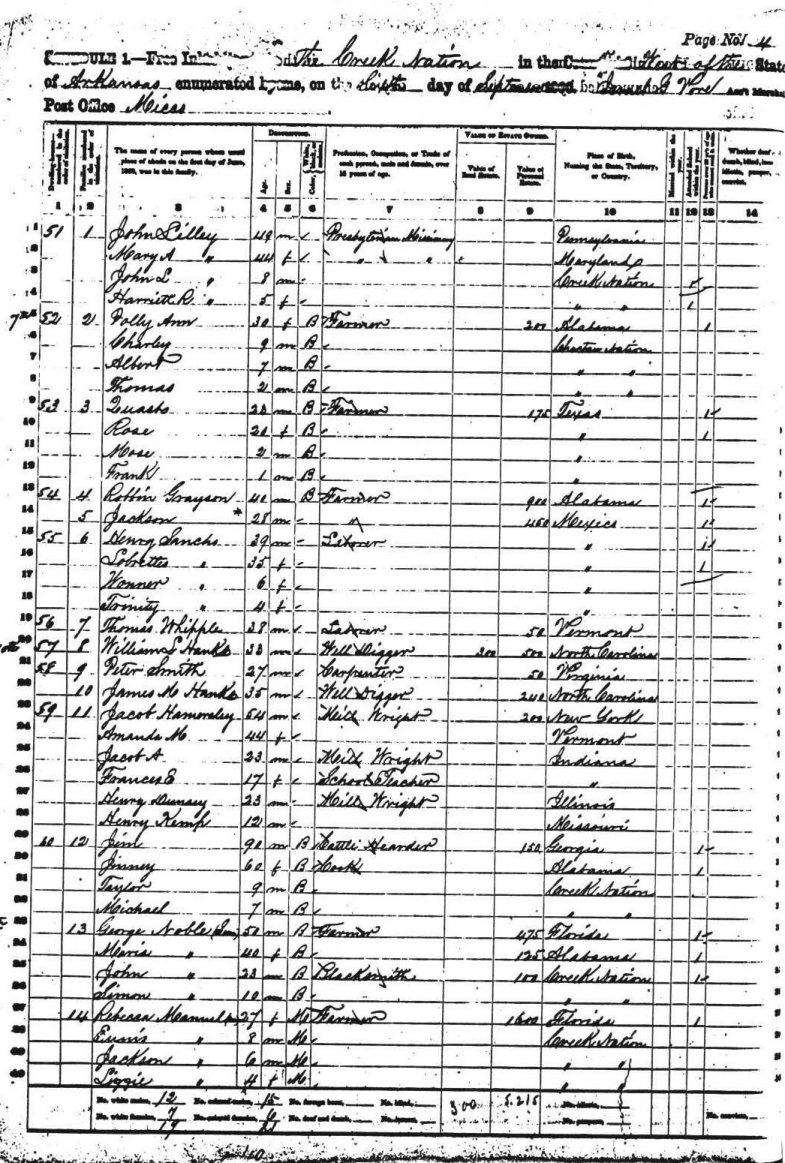 Page No. 4
SCHEDULE 1.—Free Inhabitants in the Creek Nation in the West of the State
of Arkansas enumerated by me, on the Sixth day of September Ass't Marshal
Post Office Micco
The name of every person whose usual place of abode on the first day of June, 1860, was in this family.
DESCRIPTION.
Age. Sex. Color,
Profession, Occupation, or Trade of each person, male and female, over 15 years of age.
VALUE OF ESTATE OWNED.
Value of Real Estate. Value of Personal Estate.
Place of Birth, Naming the State, Territory, or Country.
1 2 3 4 5 6 7 8 9 10 11 12 13 14
1 51 1 John Lilley 49 m Presbyterian Missionary Pennsylvania
2 Mary A " 44 f " " Maryland
3 John L " 8 m Creek Nation
4 Harriett R. " 5 f " " 1
5 52 2 Polly Ann 30 f B Farmer 200 Alabama 1
6 Charley 9 m B Choctaw Nation
7 Albert 7 m B " "
8 Thomas 2 m B " "
9 53 3 Quash 28 m B Farmer 175 Texas 1
10 Rose 20 f B " 1
11 Mose 2 m B "
12 Frank 1 m B "
13 54 4 Robbin Grayson 40 m B Farmer 900 Alabama 1
14 5 Jackson * 28 m " 450 Mexico 1
15 55 6 Henry Sanchs 39 m Laborer " 1
16 " 35 f " 1
17 " 6 f "
18 Trinity " 4 f "
19 56 7 Thomas Whipple 38 m Laborer 50 Vermont
20 57 8 William S Hanks 33 m Well Digger 300 500 North Carolina
21 58 9 Peter Smith 27 m Carpenter 50 Virginia
22 10 James M Hanks 35 m Well Digger 240 North Carolina
23 59 11 Jacob Hamersley 54 m Mill Wright 200 New York
24 Amanda M 44 f Vermont
25 Jacob A 23 m Mill Wright Indiana
26 Frances E 17 f School Teacher "
27 Henry 23 m Mill Wright Illinois
28 Henry Kemp 12 m Missouri
29 60 12 Jim 90 m B Cattle Hearder 150 Georgia 1
30 Jinney 60 f B Cook Alabama 1
31 Taylor 9 m B Creek Nation
32 Michael 7 m B " "
33 13 George Noble Sen 50 m B Farmer 475 Florida 1
34 Maria " 40 f B 125 Alabama 1
35 John " 23 m B Blacksmith 100 Creek Nation 1
36 Simon " 10 m B " "
37 14 Rebecca Manuel 27 f M Farmer 1600 Florida 1
38 " 8 m M Creek Nation
39 Jackson " 6 m M " "
40 Lizzie " 4 f M " "
No. white males, 12 No. colored males, 15 No. foreign born, No. blind, 300 5.215 No. idiotic,
No. white females, 7 No. colored females, 6 No. deaf and dumb, No. insane, No. paupers, No. convicts,
19 21